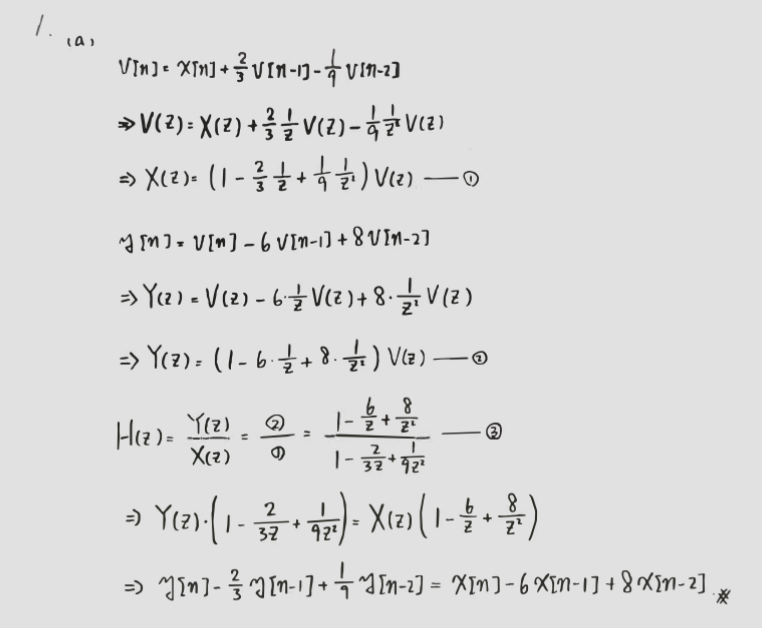 1. (a)
V[n] = X[n] + 2/3 V[n-1] - 1/9 V[n-2]
⇒ V(z) = X(z) + 2/3 1/z V(z) - 1/9 1/z² V(z)
⇒ X(z) = (1 - 2/3 1/z + 1/9 1/z²) V(z) —①
y[n] = V[n] - 6 V[n-1] + 8 V[n-2]
⇒ Y(z) = V(z) - 6·1/z V(z) + 8·1/z² V(z)
⇒ Y(z) = (1 - 6·1/z + 8·1/z²) V(z) —②
H(z) = Y(z)/X(z) = ②/① = (1 - 6/z + 8/z²)/(1 - 2/3z + 1/9z²) —③
⇒ Y(z)·(1 - 2/3z + 1/9z²) = X(z)(1 - 6/z + 8/z²)
⇒ y[n] - 2/3 y[n-1] + 1/9 y[n-2] = X[n] - 6X[n-1] + 8X[n-2] ※